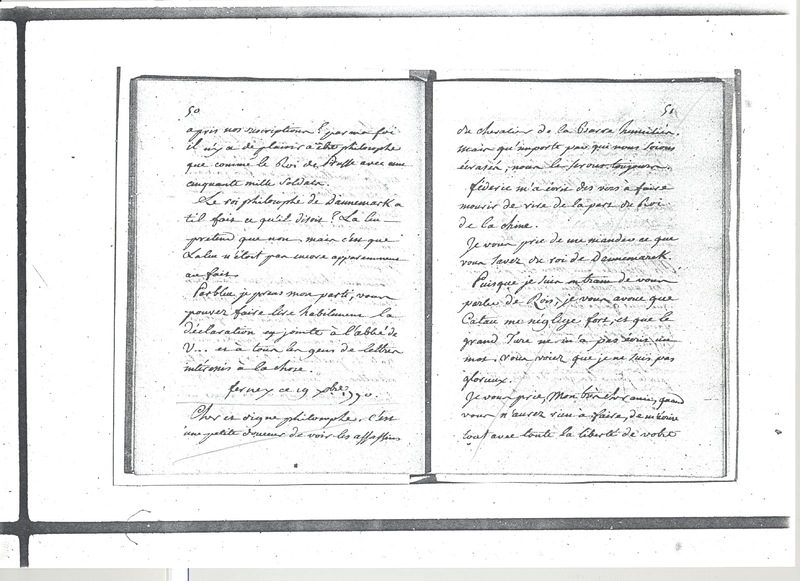 50
après nos souscriptions? par ma foi
il n'y a de plaisir à être philosophe
que comme le Roi de Prusse avec une
cinquante mille soldats.
Le roi philosophe de Dannemark a
t'il fait ce qu'il disoit? La lui
prétend que non, mais c'est que
n'étoit pas encore apparemment
au fait.
Parbleu je prens mon parti, vous
pouvez faire lire habilement la
déclaration cy jointe à l'abbé de
V... et à tous les gens de lettres
intéressés à la chose.
ferney ce 19 xbre 1770.
Cher et digne philosophe, c'est
une petite douceur de voir les assassins
51
du chevalier de la Barre humiliés.
mais qu'importe par qui nous soions
écrasés, nous le serons toujours.
féderic m'a écrit des vers à faire
mourir de rire de la part du Roi
de la chine.
Je vous prie de me mander ce que
vous savez du roi de Dannemarck.
Puisque je suis en train de vous
parler de Rois, je vous avoue que
Catau me néglige fort, et que le
grand Turc ne m'a pas écrit un
mot, vous voiez que je ne suis pas
glorieux.
Je vous prie, mon bien cher ami, quand
vous n'aurez rien à faire, de m'écrire
tout avec toute la liberté de votre